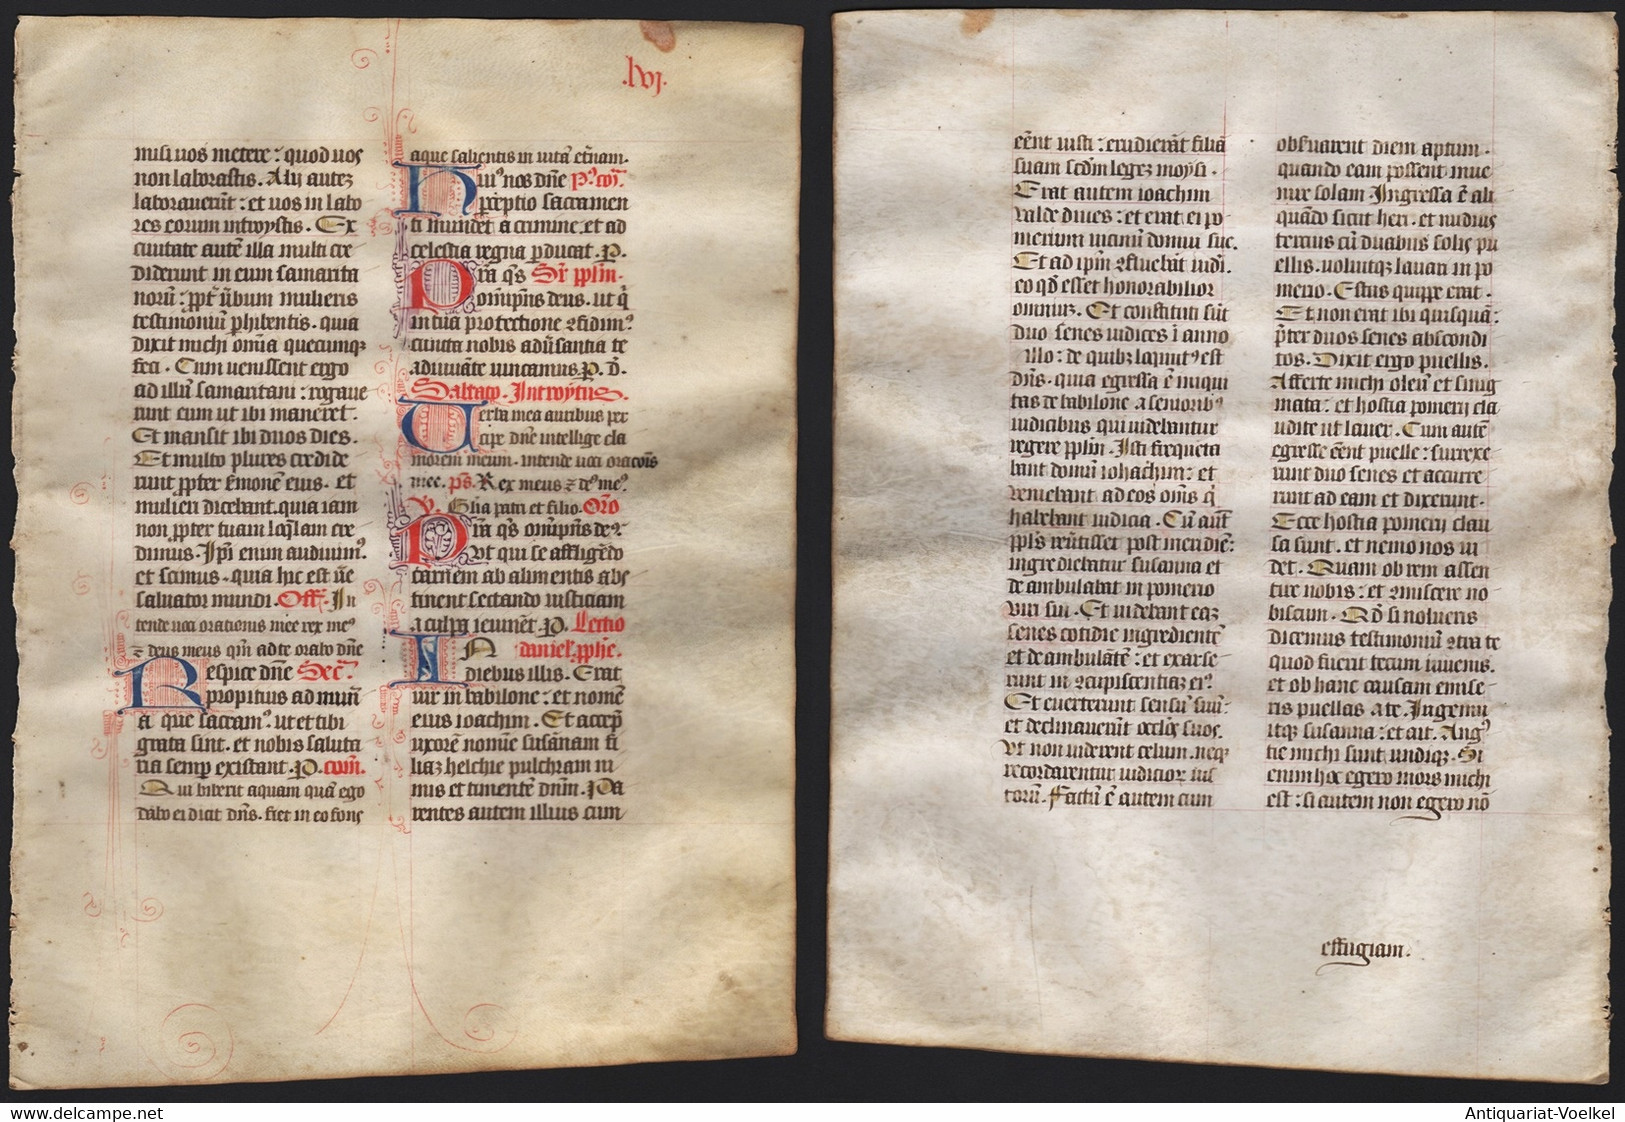 .lvj.
misi vos metere : quod vos
non laborastis. Alij autez
laboraverūt : et vos in labo
res eorum introystis. Ex
civitate autē illa multi cre
diderunt in eum samarita
norū : ꝓpt' v̄bum mulieris
testimoniū ꝑhibentis. quia
dixit michi om̄ia quecunqz
feci. Cum venissent ergo
ad illū samaritani : rogave
runt eum ut ibi maneret.
Et mansit ibi duos dies.
Et multo plures credide
runt ꝓpter s'monē eius. et
mulieri dicebant. quia iam
non ꝓpter tuam loq̄lam cre
dimus. Ip̄i enim audivimꝰ
et scimus. quia hic est v̄e
salvator mundi. Off̄. In
tende voci orationis mee rex meꝰ
⁊ deus meus qm̄ ad te orabo dn̄e
Respice dn̄e Sec̄.
propitius ad mun̄
a que sacramꝰ. ut et tibi
grata sint. et nobis saluta
ria semꝑ existant. P. com̄.
Qui biberit aquam quā ego
dabo ei dicit dn̄s. fiet in eo fons
aque salientis in vitā et̄nam.
Huiꝰ nos dn̄e Pꝰ.com̄.
ꝑceptio sacramen
ti mundet a crimine. et ad
celestia regna ꝑducat. P.
Pr̄a qs̄ Sr̄ pplm̄.
om̄ip̄ns deus. ut q̄
in tua protectione ꝯfidimꝰ
cuncta nobis adv̄santia te
adiuvāte vincamus. P. d̄.
Sabbato. Introytus.
Verba mea auribus per
cipe dn̄e intellige cla
morem meum. intende voci oracōis
mee. ps̄. Rex meus ⁊ dꝰs meꝰ
V. Gl̄ia patri et filio. Oro
Pr̄a qs̄ om̄ip̄ns deꝰ
Vt qui se affliḡedo
carnem ab alimentis abs
tinent sectando iusticiam
a culpa ieiunēt. P. Lectio
IN daniel. ꝓphe.
diebus illis. Erat
vir in babilone : et nomē
eius ioachim. Et accep̄
uxorē nomīe susānam fi
liaz helchie pulchram ni
mis et timentē dn̄m. Pa
rentes autem illius cum
eēnt iusti : erudierāt filiā
suam scd̄m legez moysi.
Erat autem ioachim
valde dives : et erat ei po
merium vicinū domui sue.
Et ad ip̄m ꝯfluebāt iudi.
eo qd̄ esset honorabilior
omniuz. Et constituti sūt
duo senes iudices ī anno
illo : de quibz loquutꝰ est
dn̄s. quia egressa ē iniqui
tas de babilone a senioribꝰ
iudicibus qui videbantur
regere pplm̄. Isti frequēta
bant domū iohachim : et
veniebant ad eos om̄s q̄
habebant iudicia. Cū aut̄
ppl's rev̄tisset post meridiē :
ingrediebatur susanna et
deambulabat in pomerio
viri sui. Et videbant eaz
senes cotidie ingredientē
et deambulātē : et exarse
runt in ꝯcupiscentiaz eiꝰ.
Et everterunt sensū suū :
et declinaverūt ocl'os suos.
Vt non viderent celum. neqz
recordarentur iudiciorꝝ ius
torū. Factū ē autem cum
observarent diem aptum.
quando eam possent inve
nire solam. Ingressa ē ali
quādo sicut heri. et nudius
tercius cū duabus solis pu
ellis. voluitqz lavari in po
merio. Estus quippe erat.
Et non erat ibi quisquā :
p̄ter duos senes abscondi
tos. Dixit ergo puellis.
Afferte michi oleū et smig
mata : et hostia pomerij cla
udite ut laver. Cum autē
egresse eēnt puelle : surrexe
runt duo senes et accurre
runt ad eam et dixerunt.
Ecce hostia pomerij clau
sa sunt. et nemo nos vi
det. Quam ob rem assen
tire nobis : et ꝯmiscere no
biscum. Qd̄ si nolueris
dicemus testimoniū ꝯtra te
quod fuerit tecum iuvenis.
et ob hanc causam emise
ris puellas a te. Ingemu
itqz susanna : et ait. Angꝰ
tie michi sunt undiqz. Si
enim hoc egero mors michi
est : si autem non egero nō
effugiam.
Antiquariat-Voelkel